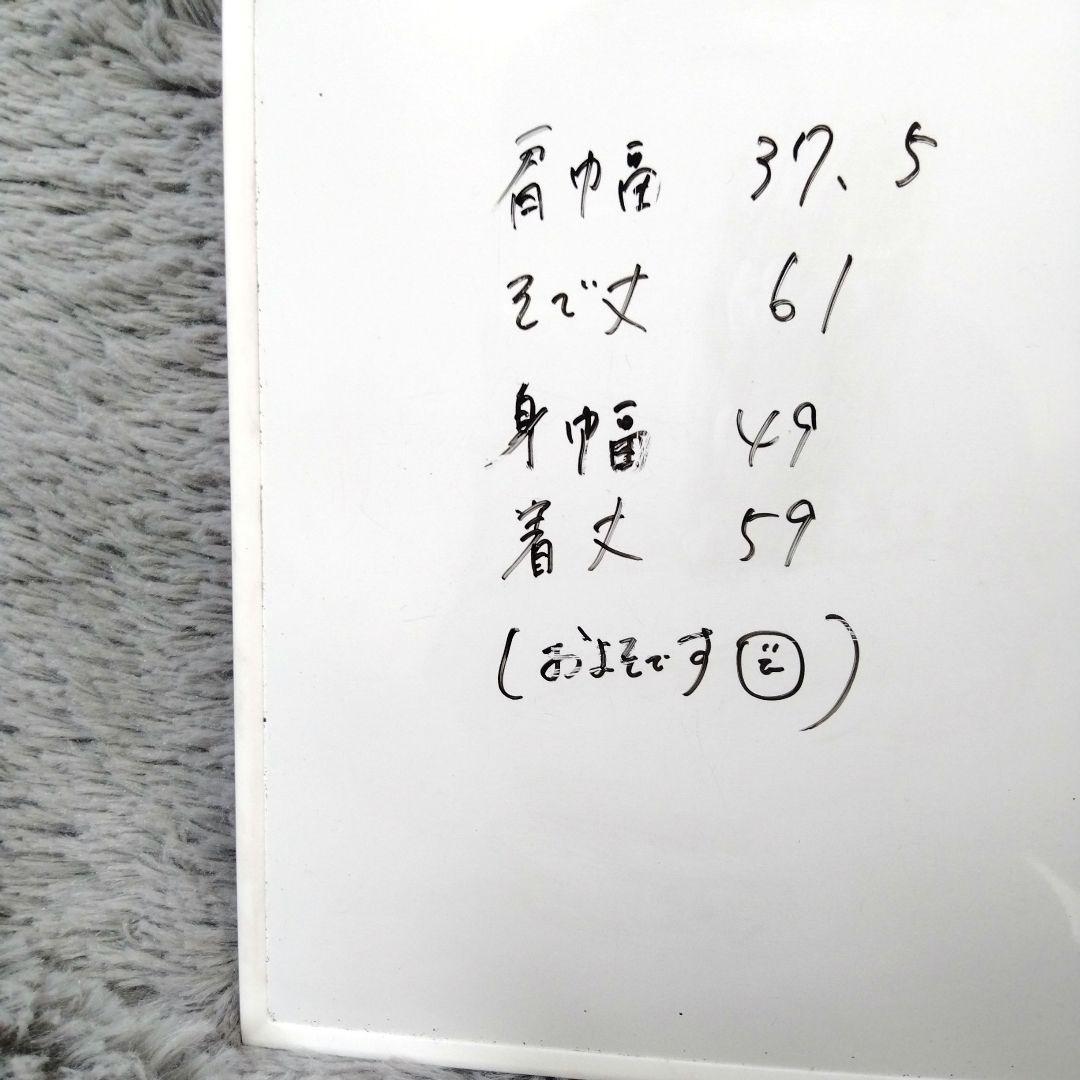 肩巾幅 37.5
そで丈 61
身巾幅 49
着丈 59
(およそです)